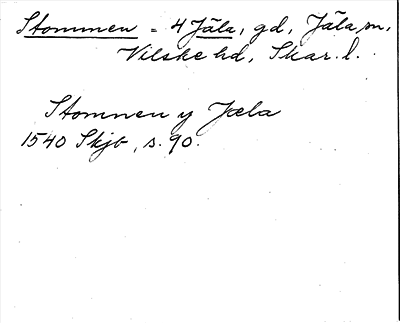 Stommen = 4 Jäla, gd, Jäla sn,
Vilske hd, Skar. l.
Stomnen y Jæla
1540 Skjb, s. 90.